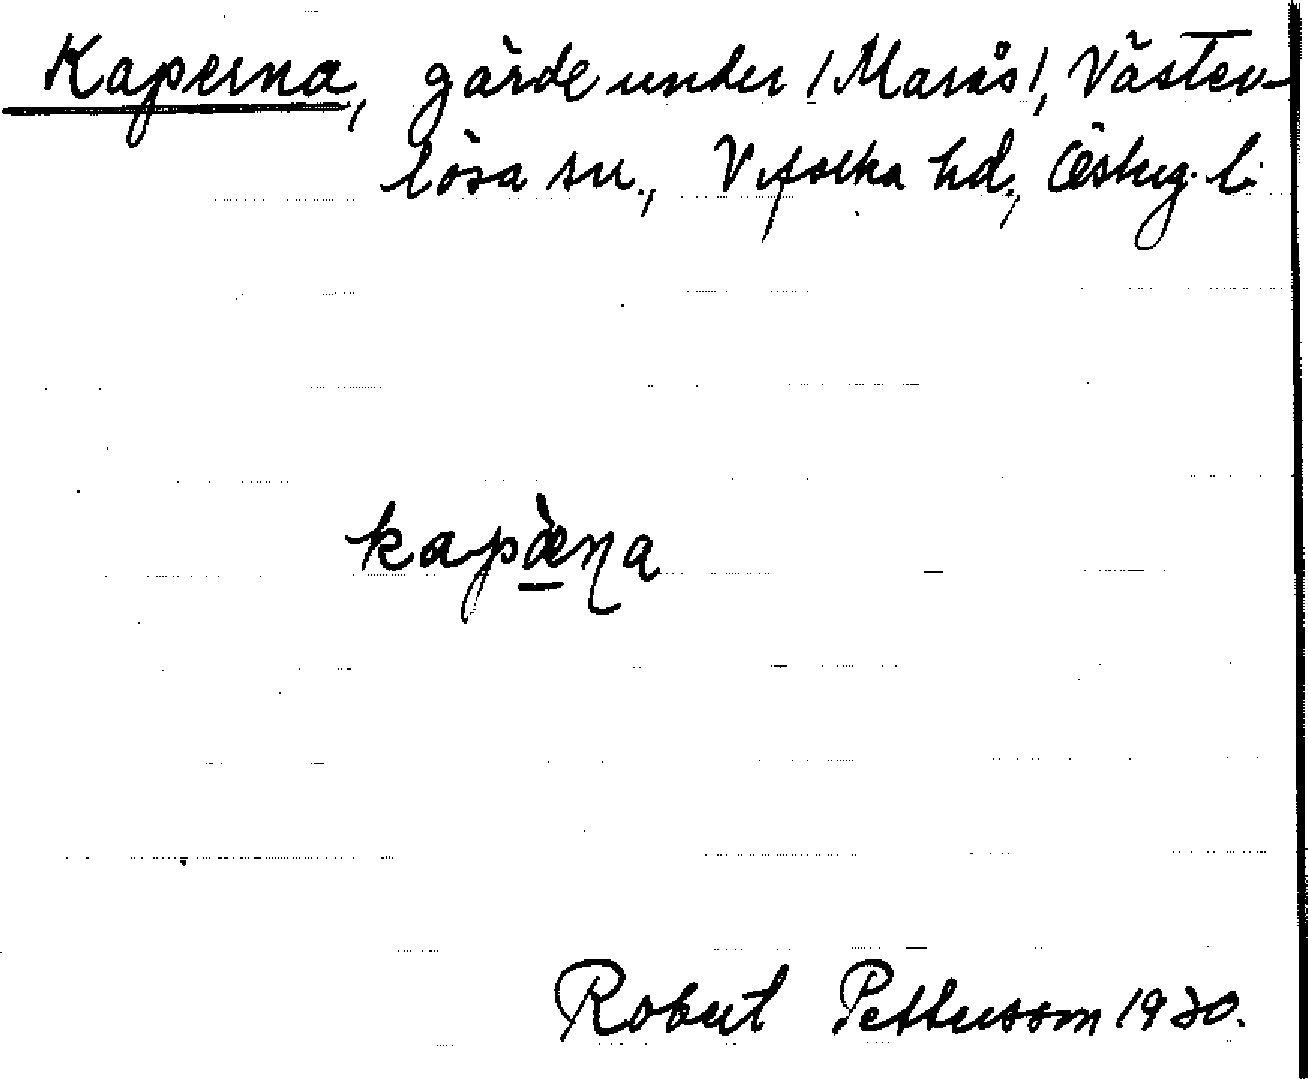 Kaperna, gärde under /Marås/, Väster-
lösa sn., Vifolka hd., Österg. l.
kapæ̀ŋa
Robert Pettersson 1930.